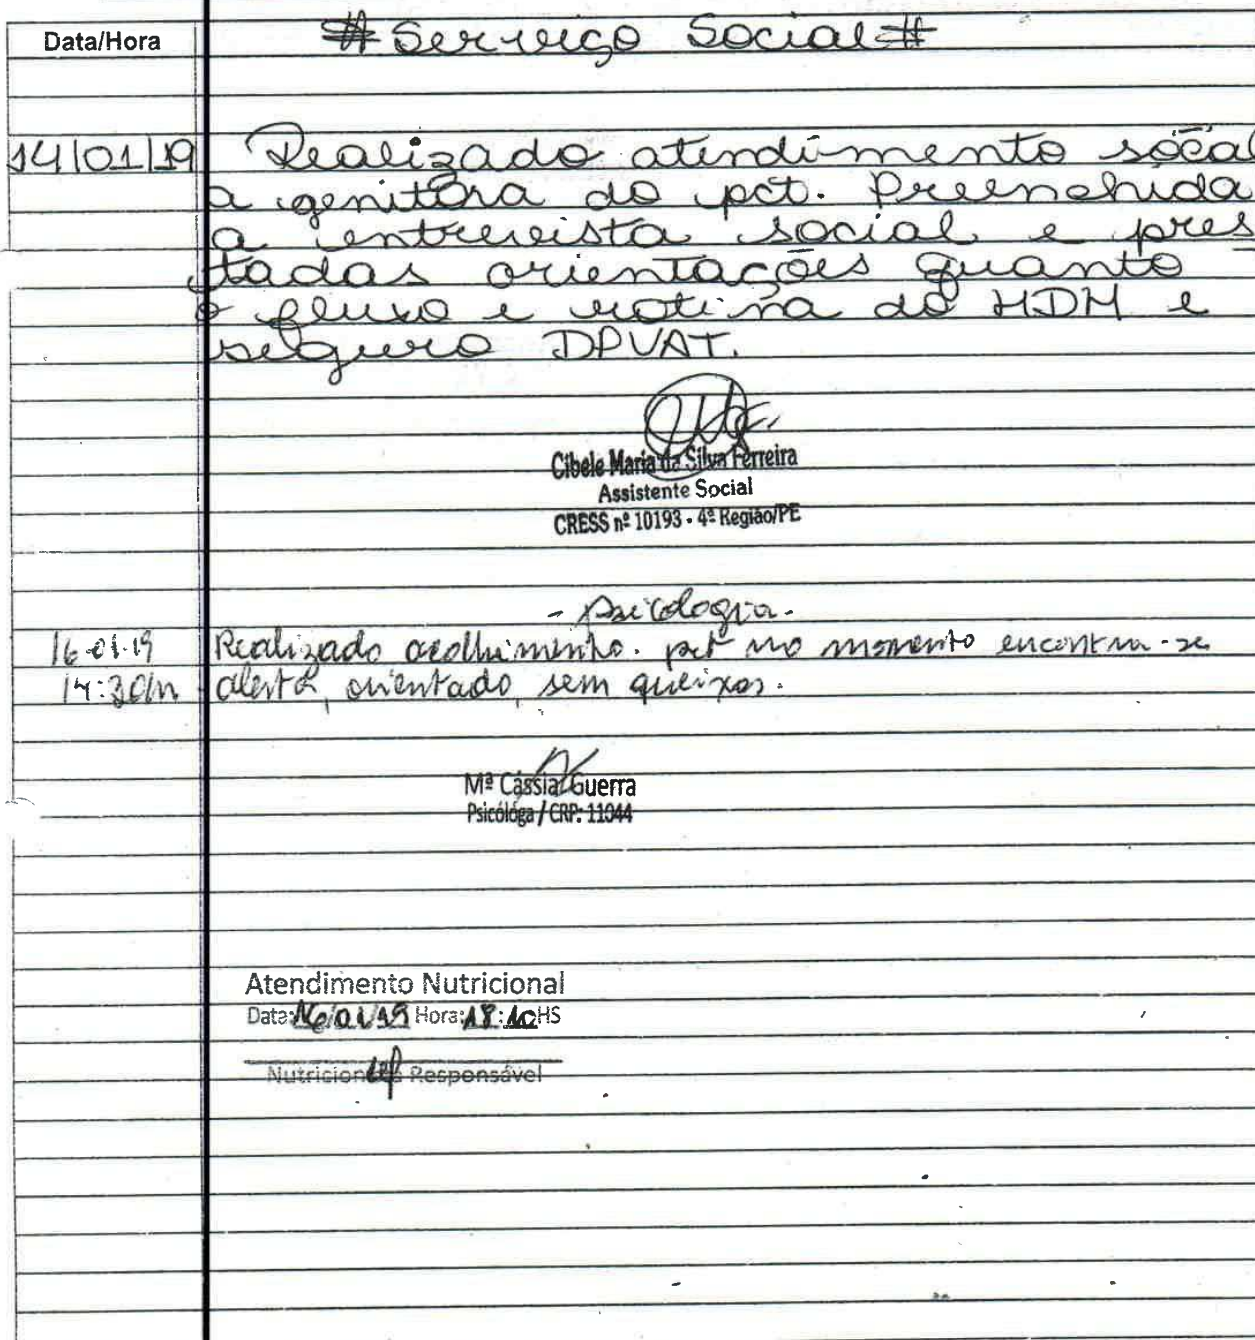 # Serviço Social #
Data/Hora
14/01/19 Realizado atendimento social
a genitora do pct. Preenchida
a entrevista social e pres
tadas orientações quanto
o fluxo e rotina do HDM e
seguro DPVAT.
Cibele Maria da Silva Ferreira
Assistente Social
CRESS nº 10193 - 4ª Região/PE
- Psicologia -
16-01-19 Realizado acolhimento. pct no momento encontra-se
14:30hn alerta, orientado, sem queixas.
Mª Cássia Guerra
Psicóloga / CRP: 11044
Atendimento Nutricional
Data: 16/01/19 Hora: 18:10 HS
Nutricionista Responsável